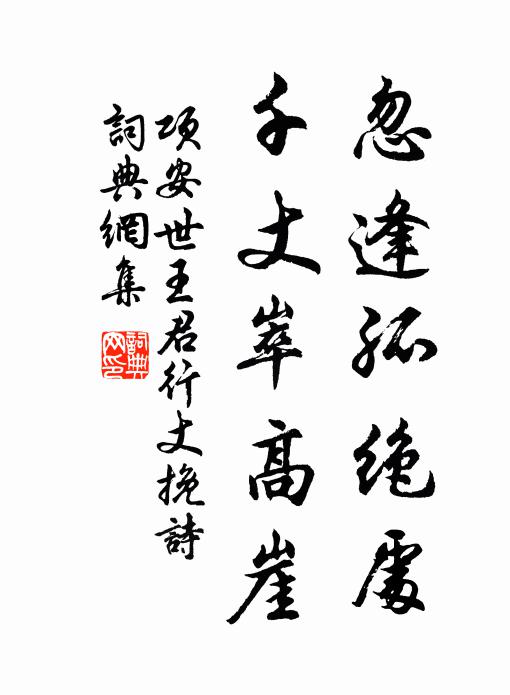 忽逢孤绝處
千丈崒高崖
項安世王君行丈挽詩
詞典網集
詞典网印